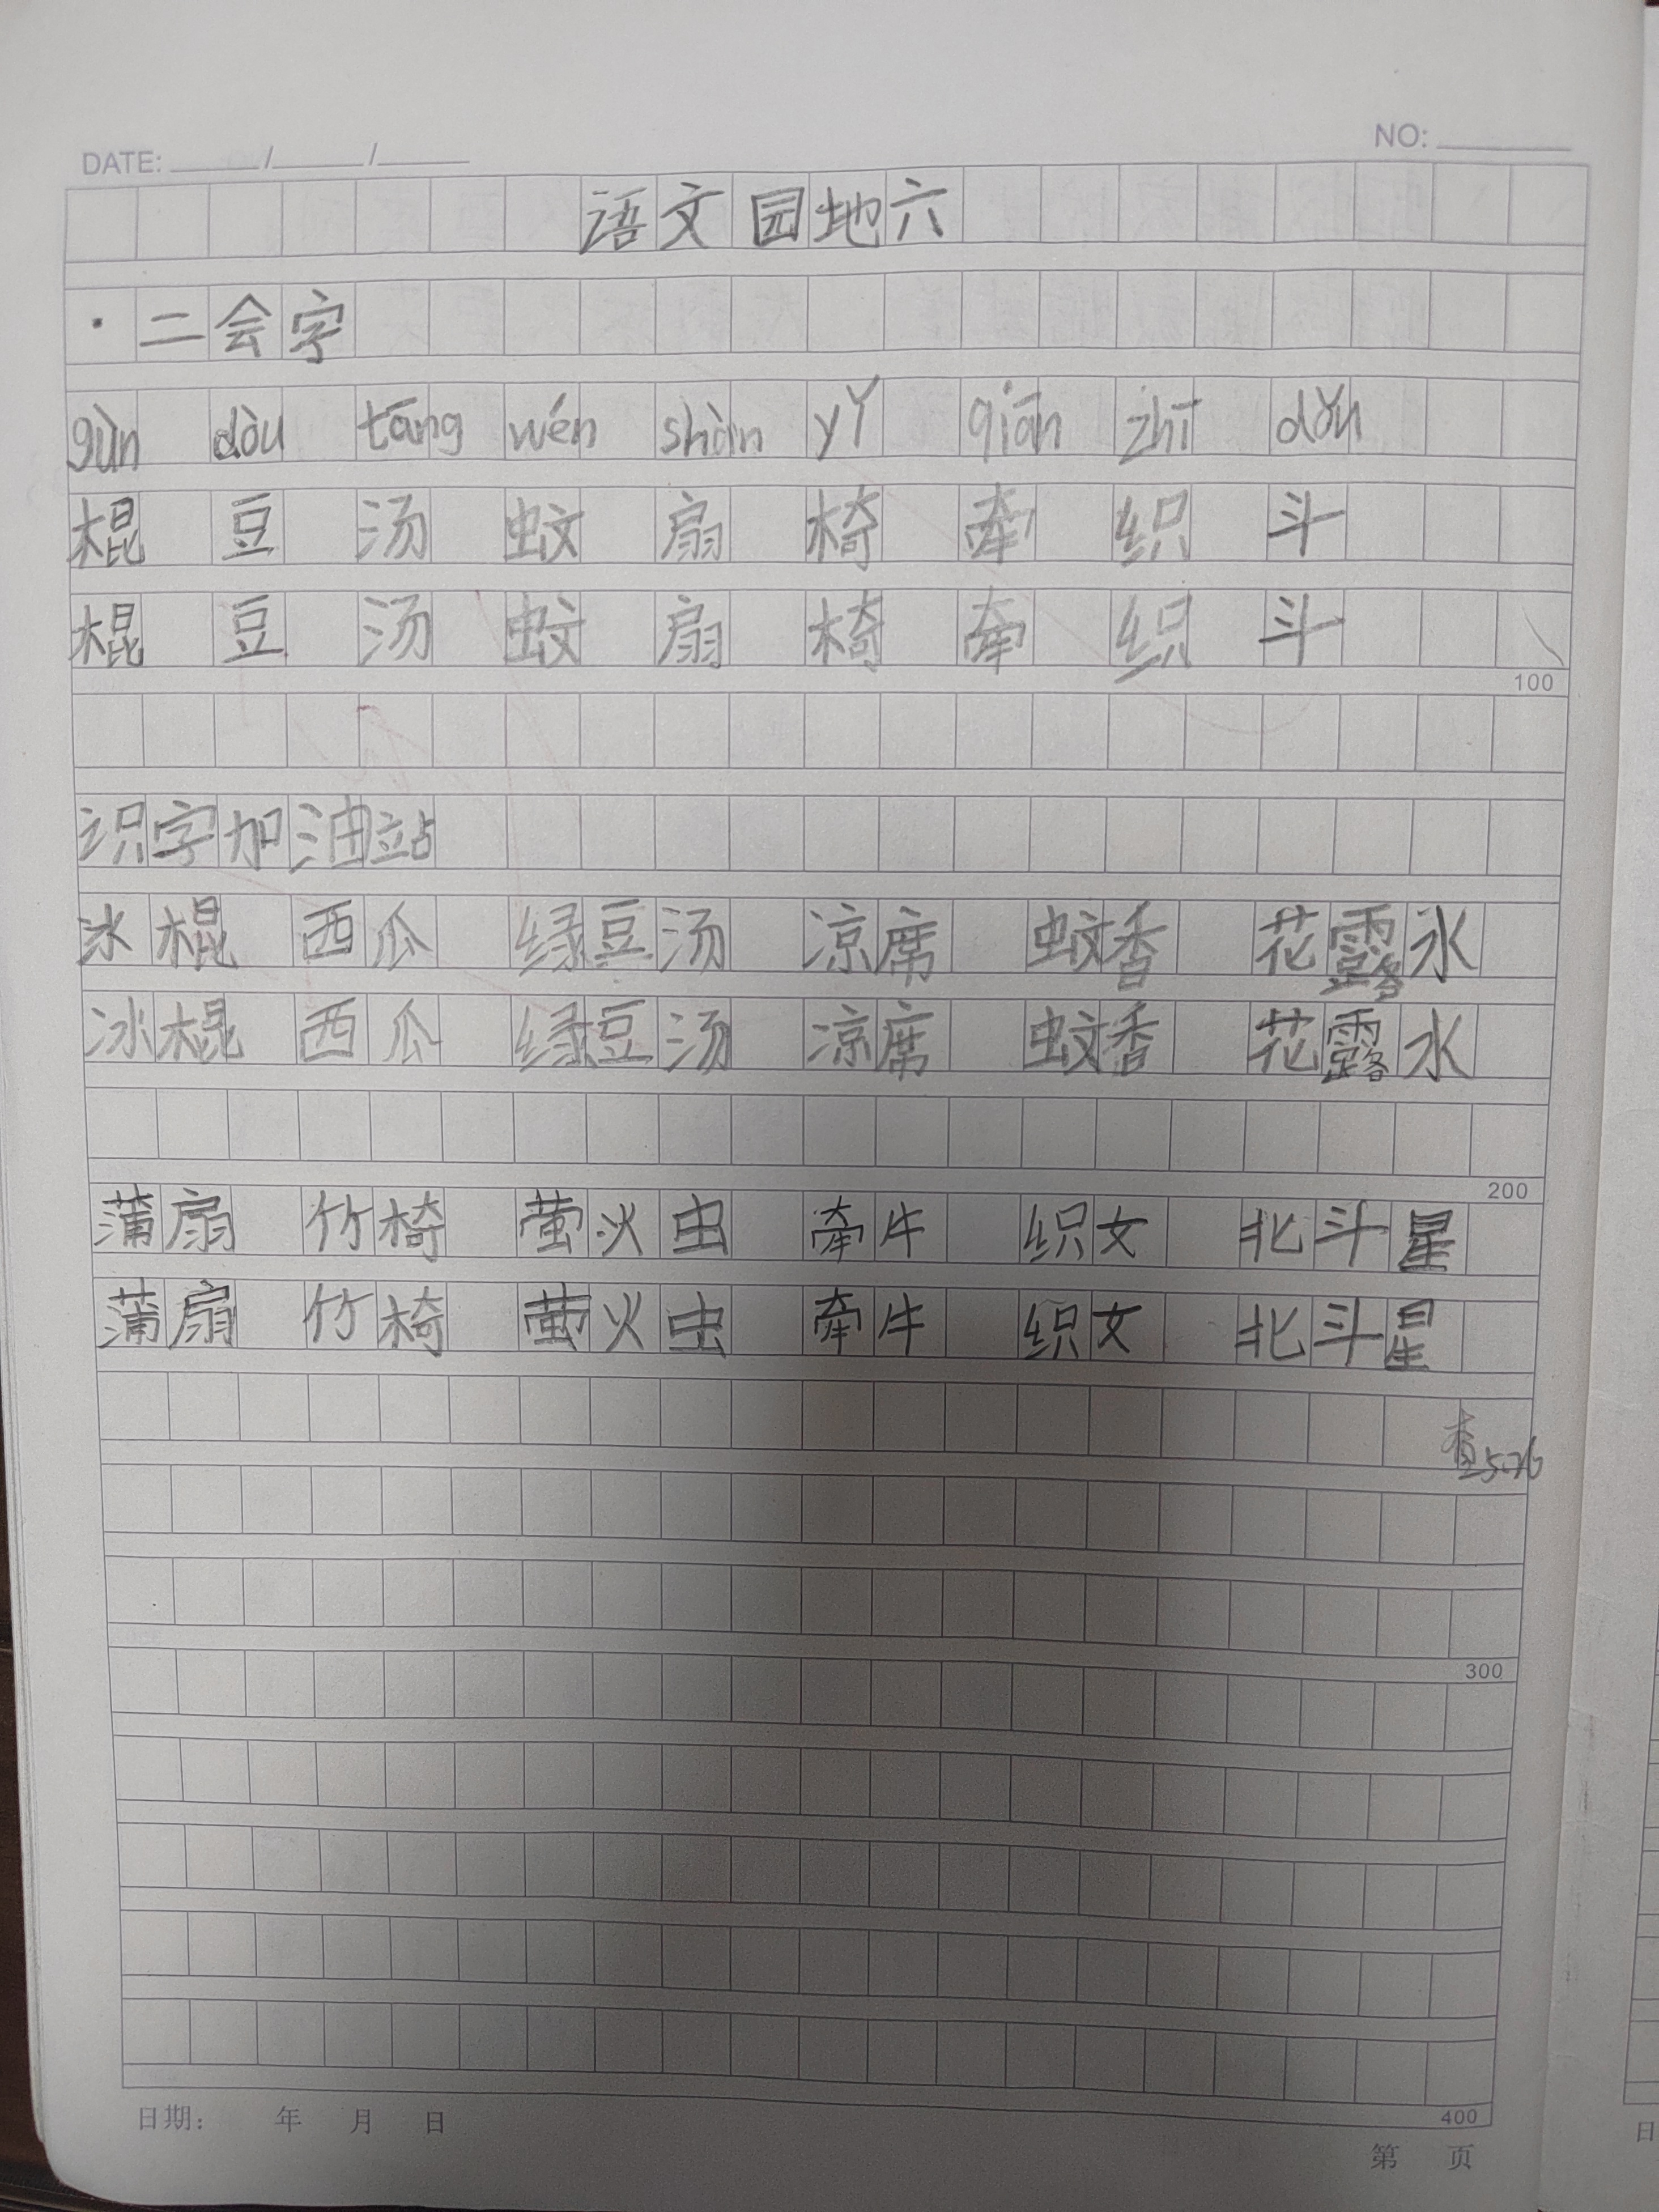 DATE: / /
NO:
语文园地六
·二会字
gùn dòu tāng wén shàn yǐ qiān zhī dǒu
棍 豆 汤 蚊 扇 椅 牵 织 斗
棍 豆 汤 蚊 扇 椅 牵 织 斗
100
识字加油站
冰棍 西瓜 绿豆汤 凉席 蚊香 花露水
冰棍 西瓜 绿豆汤 凉席 蚊香 花露水
200
蒲扇 竹椅 萤火虫 牵牛 织女 北斗星
蒲扇 竹椅 萤火虫 牵牛 织女 北斗星
查5.26
300
400
日期： 年 月 日
第 页
日